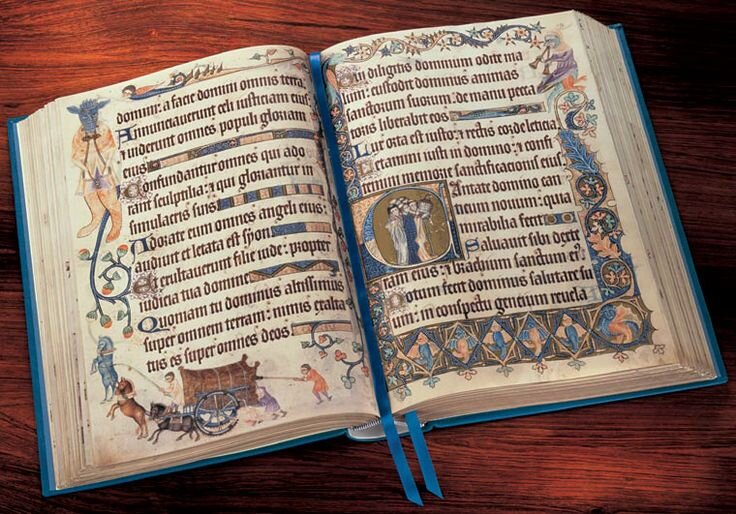 domini: a facie domini omnis terra.
Annunciauerunt celi iusticiam eius:
& uiderunt omnes populi gloriam
eius
Confundantur omnes qui ado
rant sculptilia: & qui gloriantur in
simulacris suis
Adorate eum omnes angeli eius:
audiuit et letata est syon
Et exultauerunt filie iude: propter
iudicia tua domine
Quoniam tu dominus altissimus
super omnem terram: nimis exalta
tus es super omnes deos
Qui diligitis dominum odite ma
lum: custodit dominus animas
sanctorum suorum: de manu pecca
toris liberabit eos
Lux orta est iusto: & rectis corde leticia.
Letamini iusti in domino: & confi
temini memorie sanctificacionis eius.
Cantate domino can
ticum nouum: quia
mirabilia fecit
Saluauit sibi dexte
ra eius: & brachium sanctum ei9
Notum fecit dominus salutare su
um: in conspectu gencium reuela